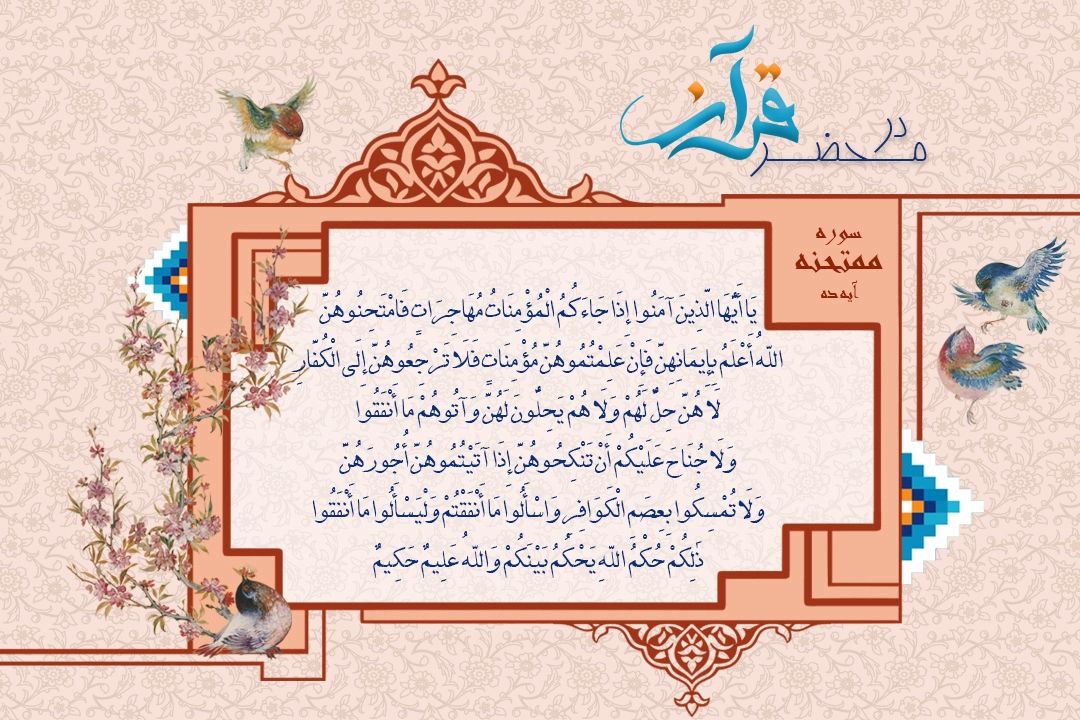 در محضر قرآن
سوره
ممتحنه
آیه ده
يَا أَيُّهَا الَّذِينَ آمَنُوا إِذَا جَاءَكُمُ الْمُؤْمِنَاتُ مُهَاجِرَاتٍ فَامْتَحِنُوهُنَّ
اللَّهُ أَعْلَمُ بِإِيمَانِهِنَّ فَإِنْ عَلِمْتُمُوهُنَّ مُؤْمِنَاتٍ فَلَا تَرْجِعُوهُنَّ إِلَى الْكُفَّارِ
لَا هُنَّ حِلٌّ لَهُمْ وَلَا هُمْ يَحِلُّونَ لَهُنَّ وَآتُوهُمْ مَا أَنْفَقُوا
وَلَا جُنَاحَ عَلَيْكُمْ أَنْ تَنْكِحُوهُنَّ إِذَا آتَيْتُمُوهُنَّ أُجُورَهُنَّ
وَلَا تُمْسِكُوا بِعِصَمِ الْكَوَافِرِ وَاسْأَلُوا مَا أَنْفَقْتُمْ وَلْيَسْأَلُوا مَا أَنْفَقُوا
ذَٰلِكُمْ حُكْمُ اللَّهِ يَحْكُمُ بَيْنَكُمْ وَاللَّهُ عَلِيمٌ حَكِيمٌ